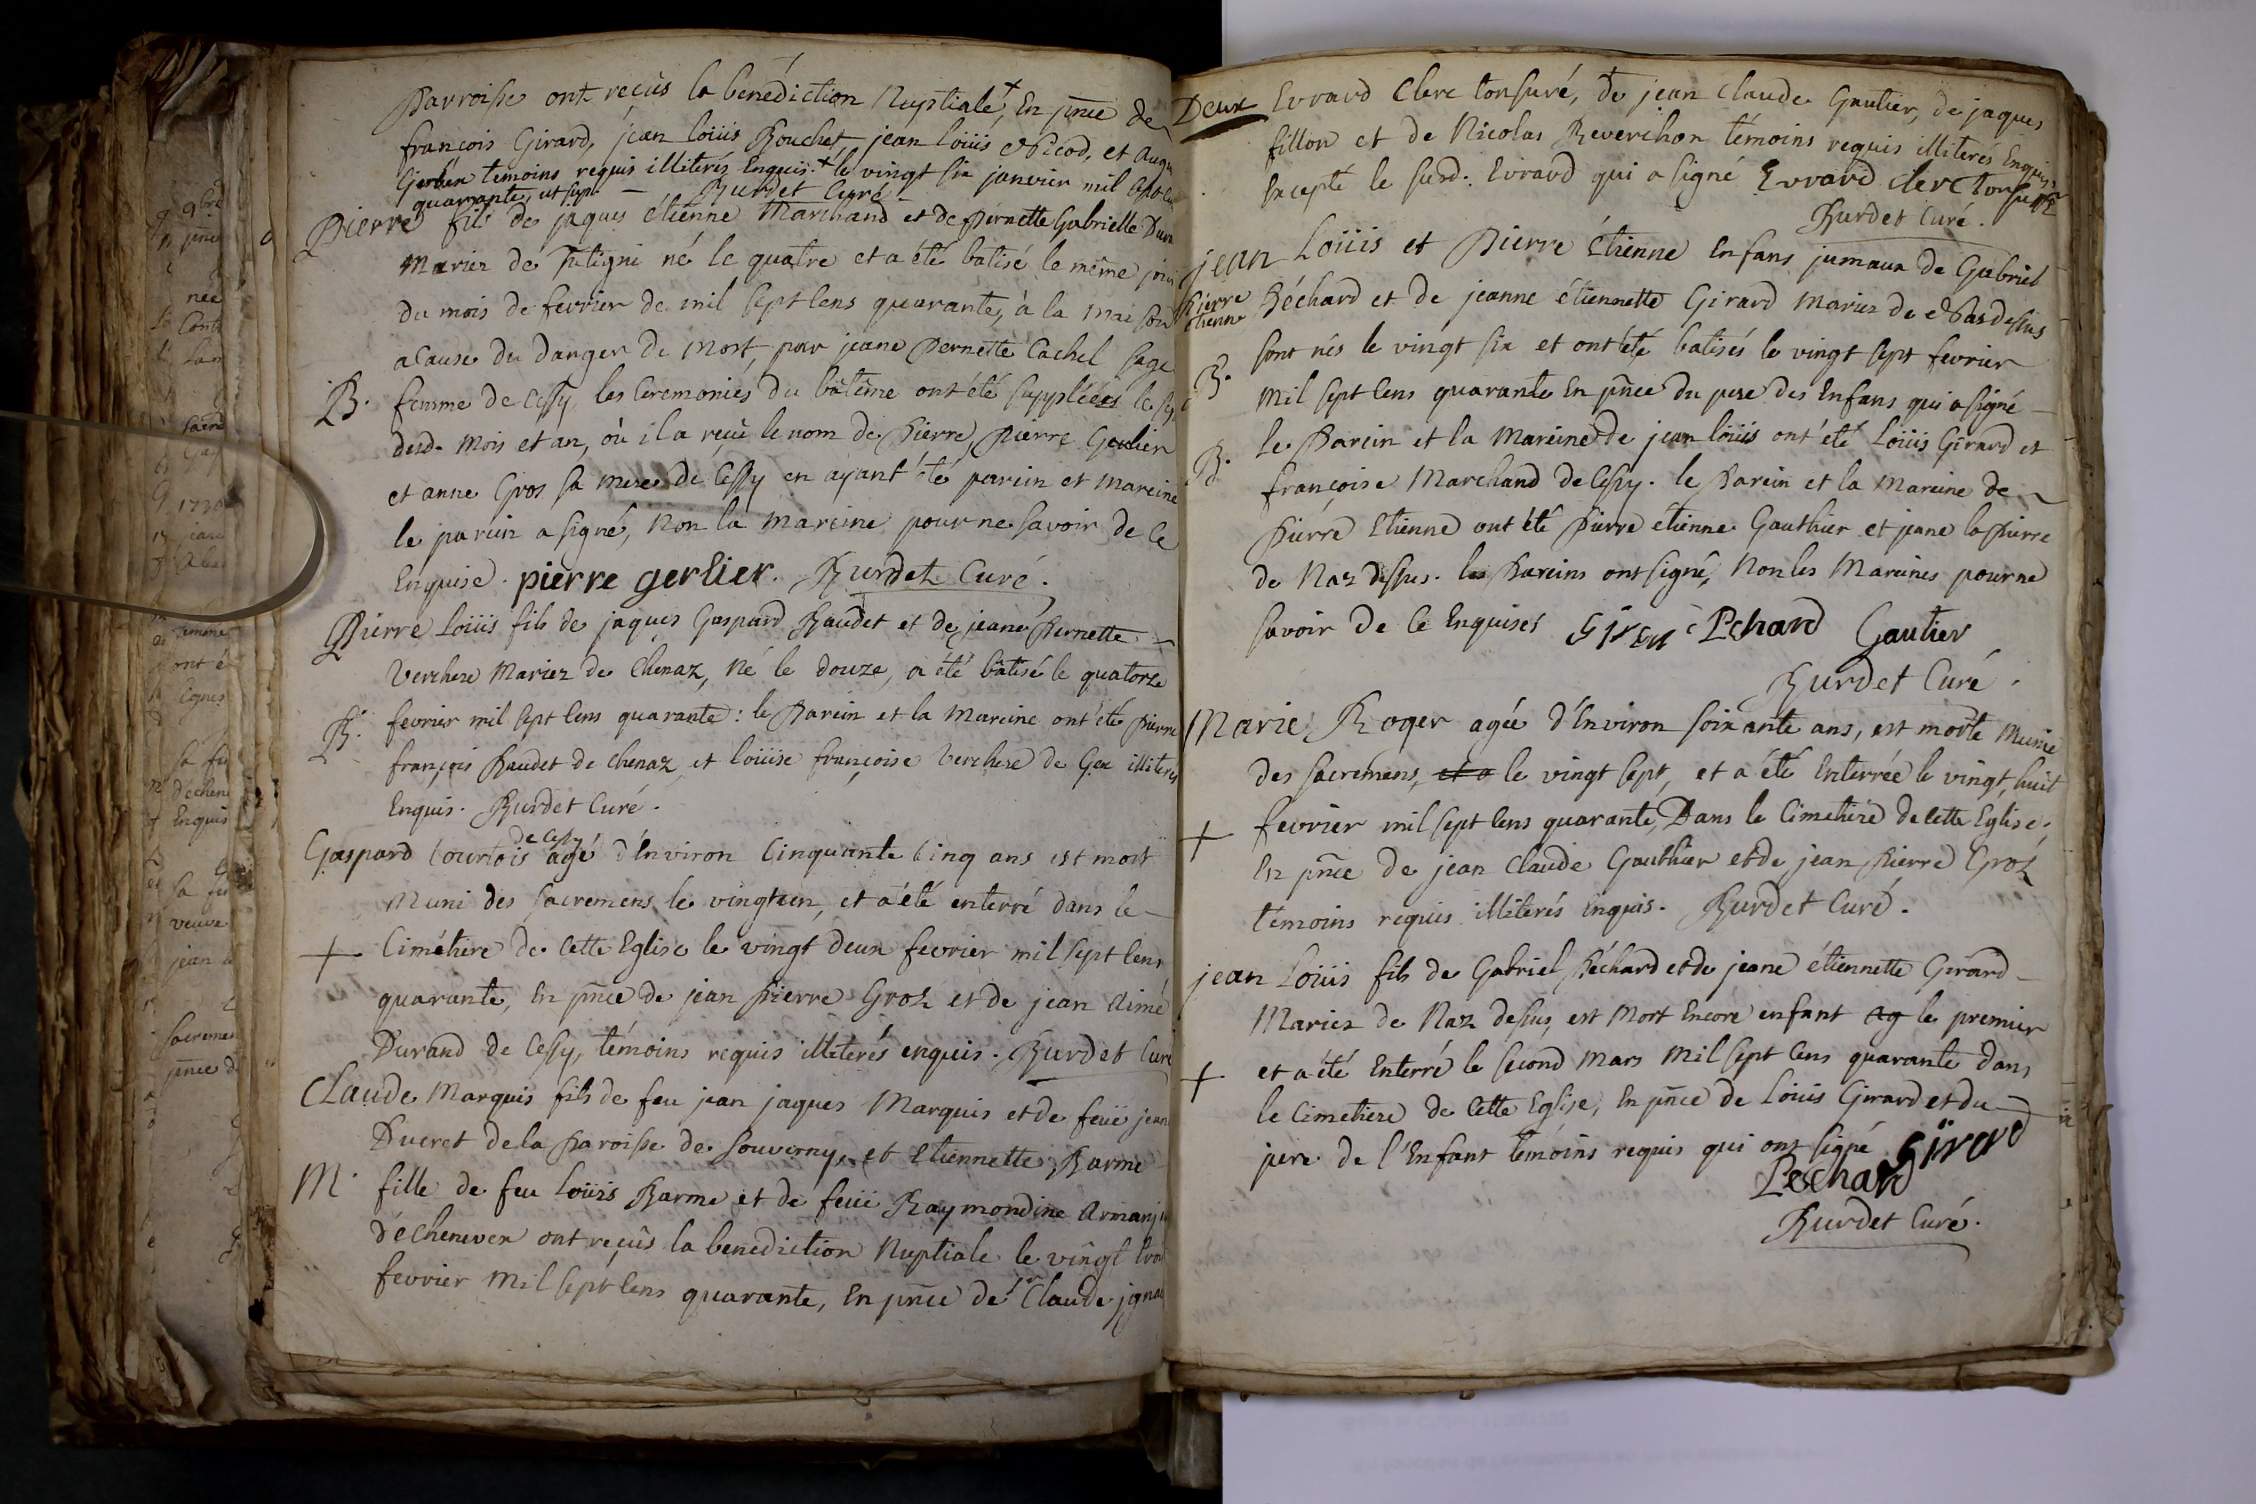 Parroisse ont reçûs la benédiction Nuptiale + En pñce de
françois Girard, jean loüis Bouchet, jean loüis Nicod, et
témoins requis illiterés Enquis. + le vingt six janvier mil sept
quarante, ut sup. — Burdet Curé
Pierre fils de jaques étienne Marchand et de Pernette Gabrielle
Mariez de né le quatre et a été batisé le même jour
du mois de fevrier de mil sept cens quarante, à la maison
a Cause du danger de Mort, par jeane Pernette Cachel sage
B. femme de Cessy, les Ceremonies du bâtême ont été suppléées le
desd. mois et an, où il a reçu le nom de Pierre, Pierre Gerlier
et anne Gros sa mere de Cessy en ayant été parein et mareine
le parein a signé, Non la mareine pour ne savoir de Ce
Enquise. pierre gerlier. Burdet Curé.
Pierre Loüis fils de jaques Gaspard Baudet et de jeane Pernette
Verchere Mariez de Chenaz, Né le douze, a été bâtisé le quatorze
B. fevrier mil sept Cens quarante: le Parein et la Mareine ont été Pierre
françois Baudet de Chenaz et loüise françoise Verchere de Gex illiteres
Enquis. Burdet Curé.
de Cessy
Gaspard Courtois agé d'Environ Cinquante Cinq ans est mort
Muni des sacremens le vingt un, et a été enterré dans le
+ Cimétiere de Cette Eglise le vingt deux fevrier mil sept Cens
quarante, En pñce de jean Pierre Groz et de jean Aimé
Durand de Cessy, témoins requis illiterés enquis. Burdet Curé
Claude Marquis fils de feu jean jaques Marquis et de feüe jean
Ducret de la Paroisse de Souverny, et Etiennette Barme
M. fille de feu loüis Barme et de feüe Raymondine
d'échenevex ont reçûs la benediction Nuptiale le vingt
fevrier mil sept Cens quarante, En pñce de Claude
Deux Evrard Clerc tonsuré, de jean Claude Gautier, de jaques
fillon et de Nicolas Reverchon témoins requis illiterés Enquis
Excepté le susd. Evrard qui a signé Evrard clerc tonsuré
Burdet Curé.
jean Loüis et Pierre étienne Enfans jumaux de Gabriel
Pierre étienne Péchard et de jeanne étiennette Girard mariez de Nasdessus
sont nés le vingt six et ont été batisés le vingt sept fevrier
B. mil sept Cens quarante En pñce du pere des Enfans qui a signé
le Parein et la Mareine de jean loüis ont été Loüis Girard et
B. françoise Marchand de Cessy. le Parein et la mareine de
Pierre Etienne ont été Pierre étienne Gauthier et jeane la pierre
de Naz dessus. les Pareins ont signé, Non les Mareines pour ne
savoir de Ce Enquises Pchard Gautier
Burdet Curé.
Marie Roger agée d'Environ soixante ans, est morte Munie
des sacremens, et a le vingt sept, et a été Enterrée le vingt, huit
+ fevrier mil sept Cens quarante, Dans le Cimetiere de Cette Eglise.
En pñce de jean Claude Gauthier et de jean Pierre Groz
témoins requis illiterés Enquis. Burdet Curé.
jean Loüis fils de Gabriel Péchard et de jeane étiennette Girard
Mariez de Naz dessus, est Mort Encore enfant ag le premier
+ et a été Enterré le second Mars Mil sept Cens quarante dans
le Cimetiere de Cette Eglise, En pñce de Loüis Girard et du
pere de l'Enfant témoins requis qui ont signé Girard
Pechard
Burdet Curé.